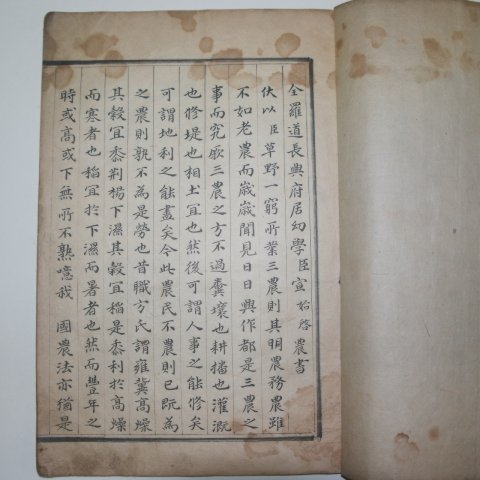 全羅道長興府居幼學臣宣始啓農書
伏以臣草野一窮所業三農則其明農務農雖
不如老農而歲歲聞見日日興作都是三農之
事而究厥三農之方不過糞壤也耕播也灌漑
也修堤也相土宜也然後可謂人事之能修矣
可謂地利之能盡矣今此農民不農則已旣為
之農則孰不為是勞也昔職方氏謂雍冀高燥
其穀宜黍荆楊下濕其穀宜稻是黍利於高燥
而寒者也稻宜於下濕而暑者也然而豐年之
時或高或下無所不熟噫我 國農法亦猶是